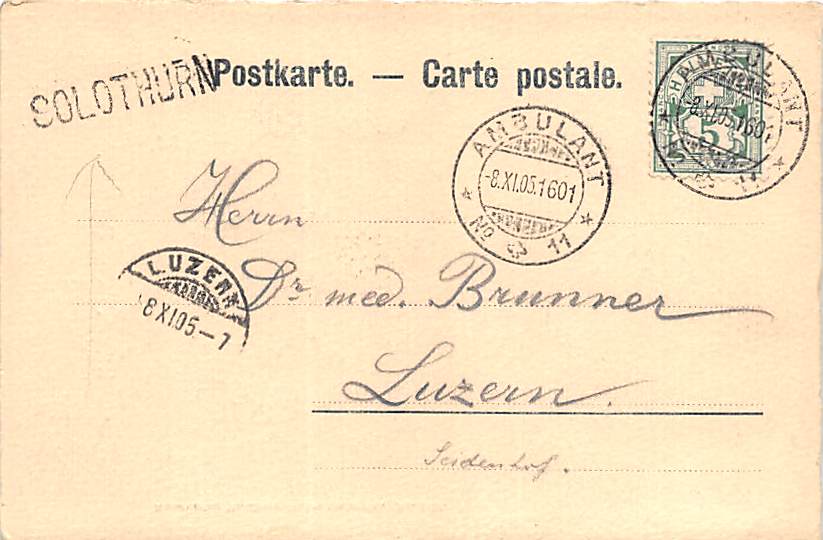 Postkarte. — Carte postale.
SOLOTHURN
AMBULANT
-8.XI.05.1601
No 11
AMBULANT
-8.XI.05.1601
5
11
Herrn
LUZERN
8 XI.05-7
Dr med. Brunner
Luzern.
Seidenhof.